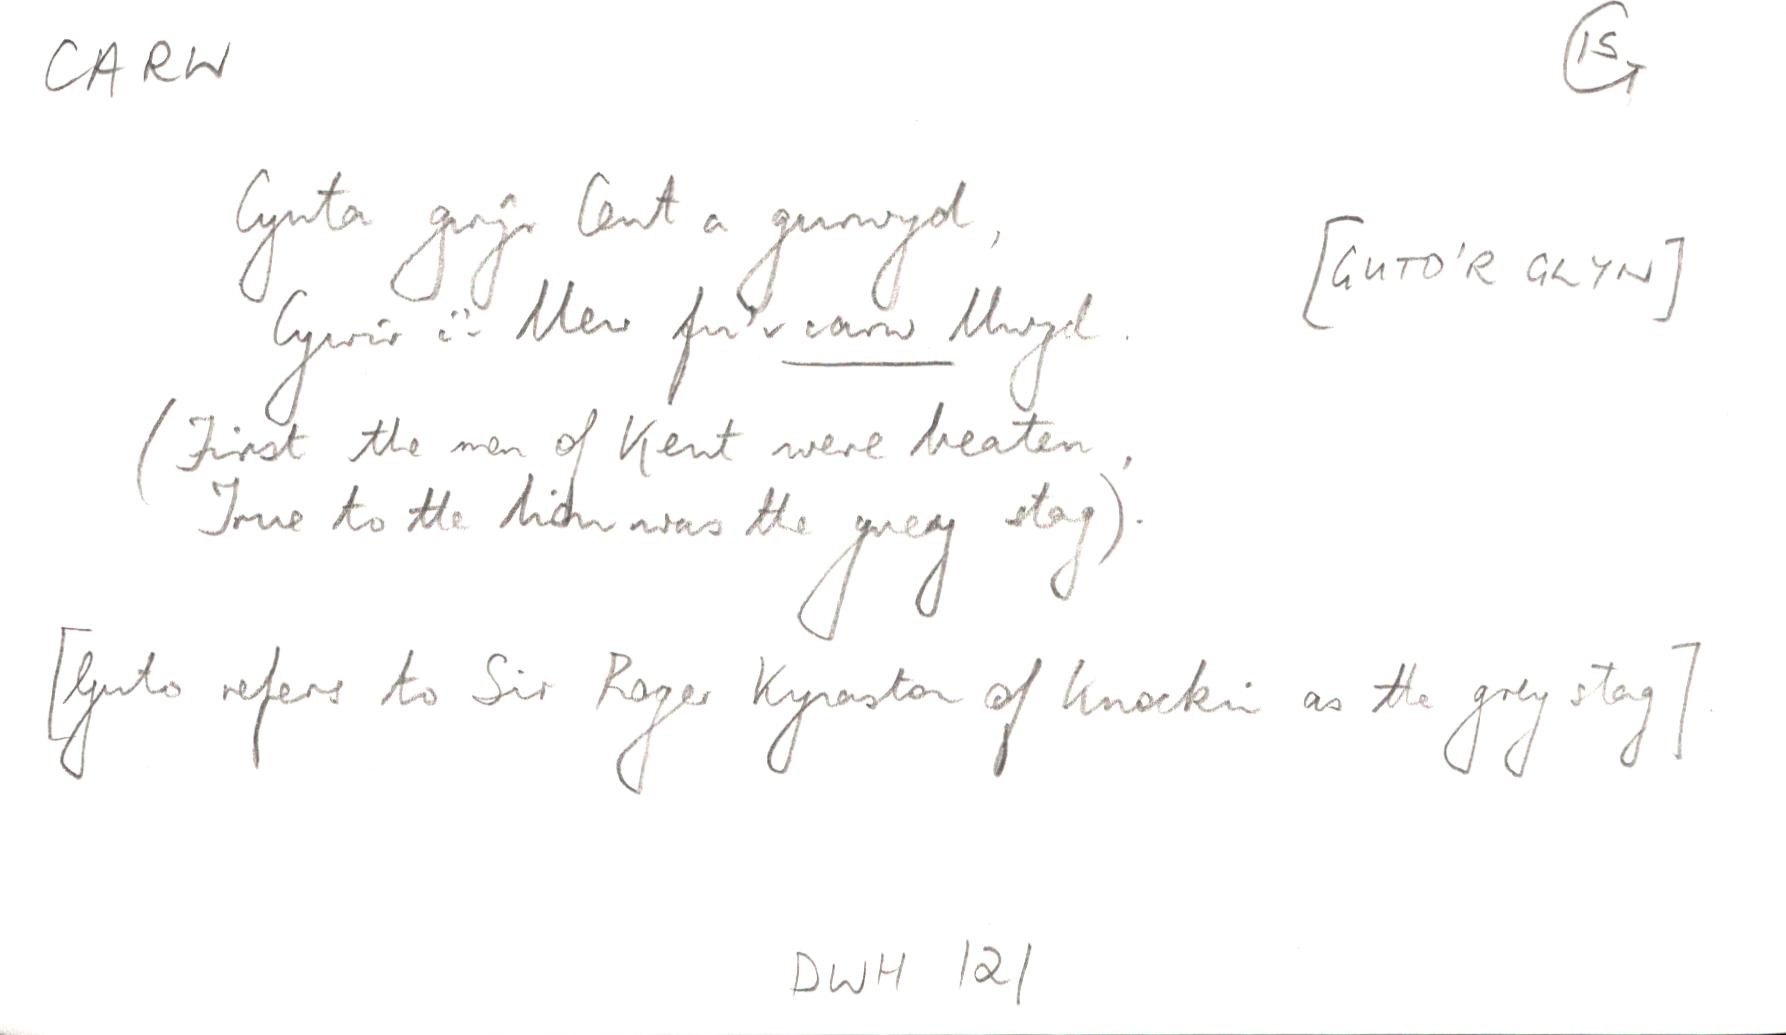 CARW
15
Cynta gwŷr Cent a gurwyd,
[GUTO'R GLYN]
Cywir i'r Llew fu'r carw llwyd.
(First the men of Kent were beaten,
True to the lion was the grey stag).
[Guto refers to Sir Roger Kynaston of Knockin as the grey stag].
DWH 121